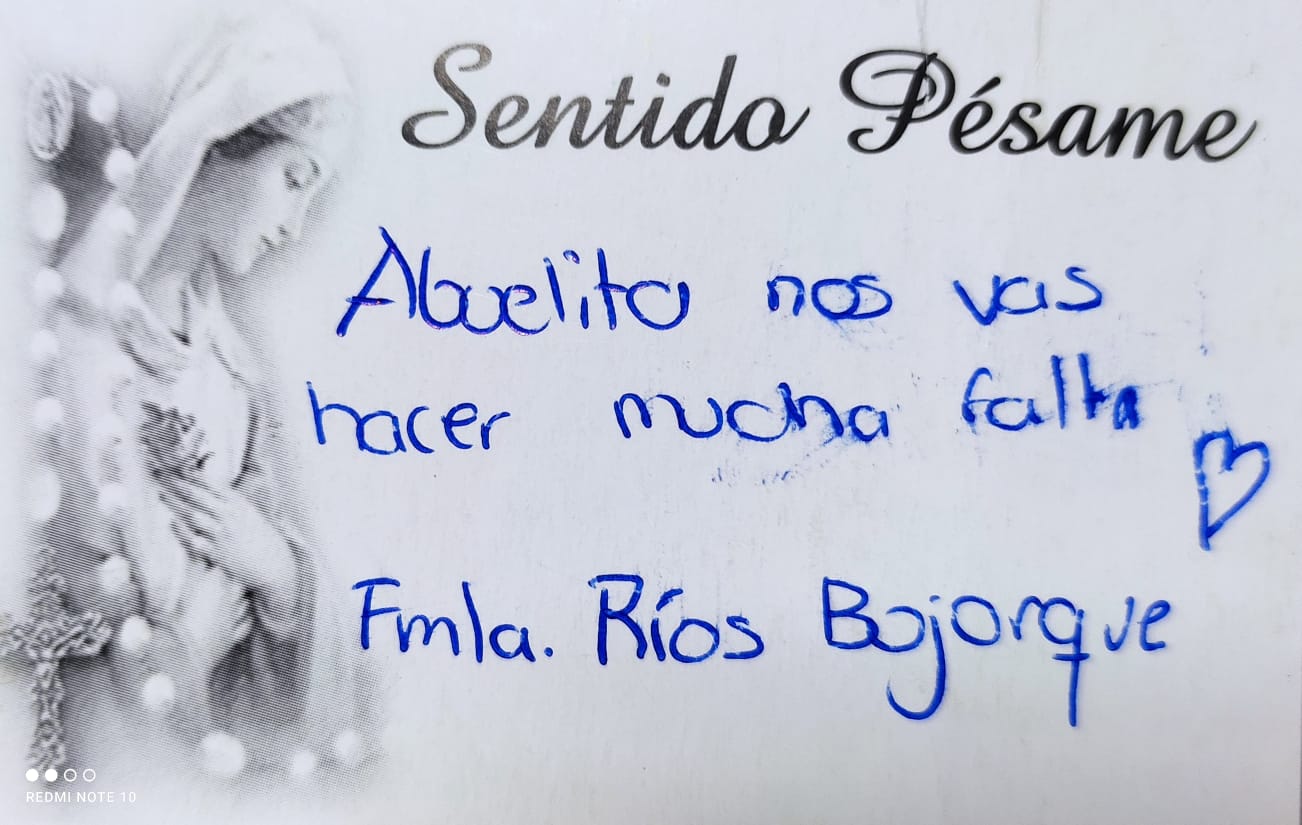 Sentido Pésame
Abuelita nos vas
hacer mucha falta
Fmla. Ríos Bojorque
REDMI NOTE 10